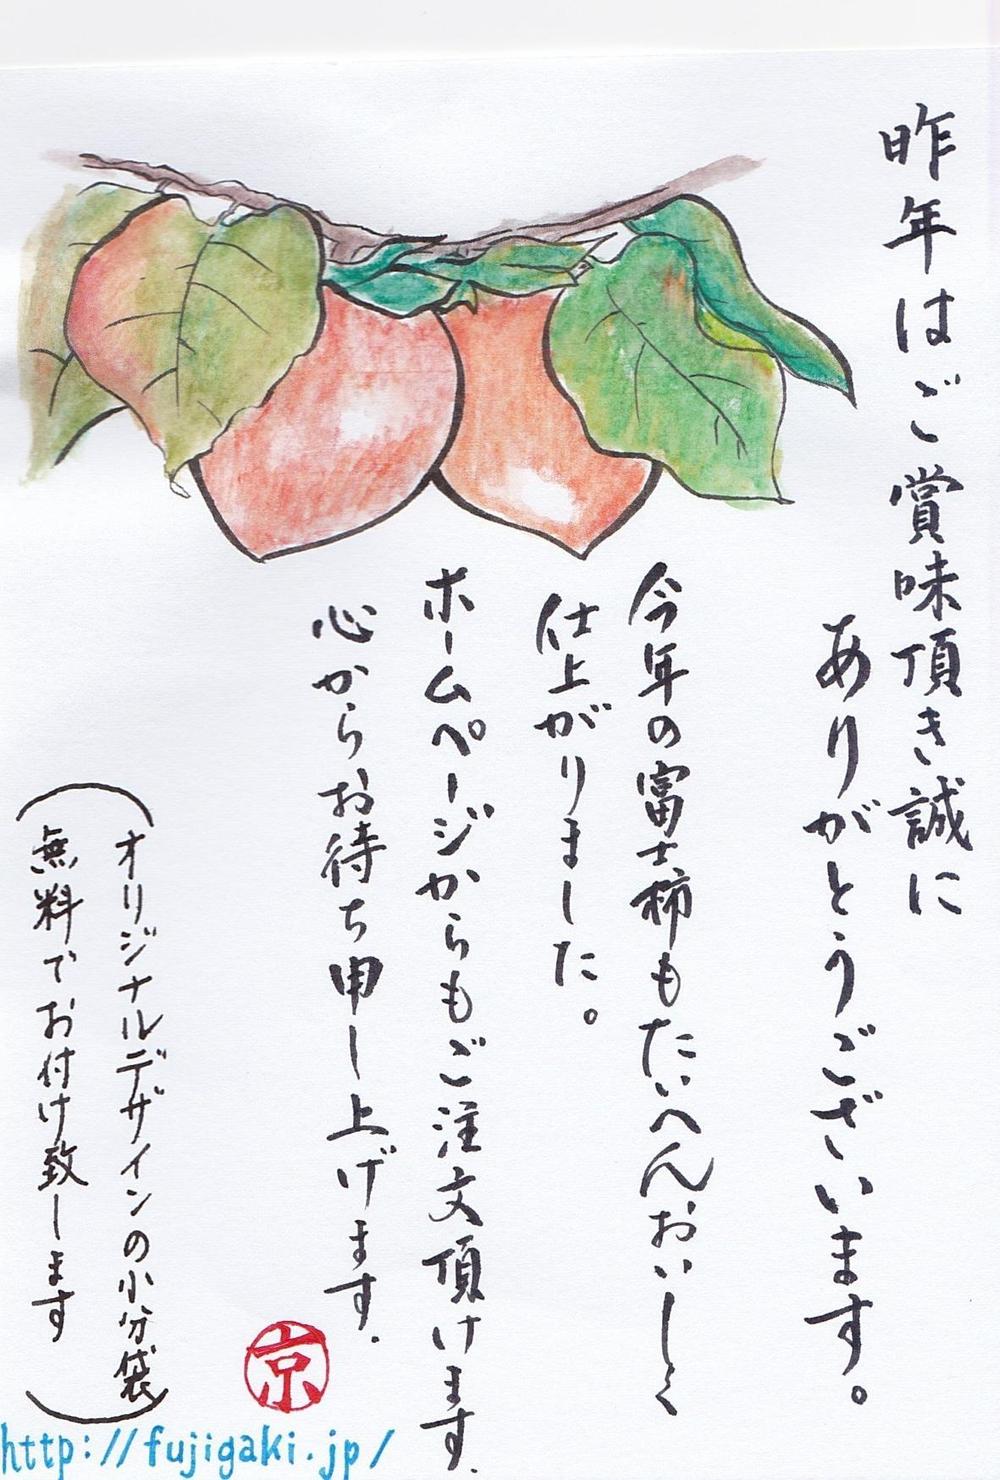 昨年はご賞味頂き誠に
ありがとうございます。
今年の富士柿もたいへんおいしく
仕上がりました。
ホームページからもご注文頂けます.
心からお待ち申し上げます.
京
(オリジナルデザインの小分袋
無料でお付け致します)
http://fujigaki.jp/